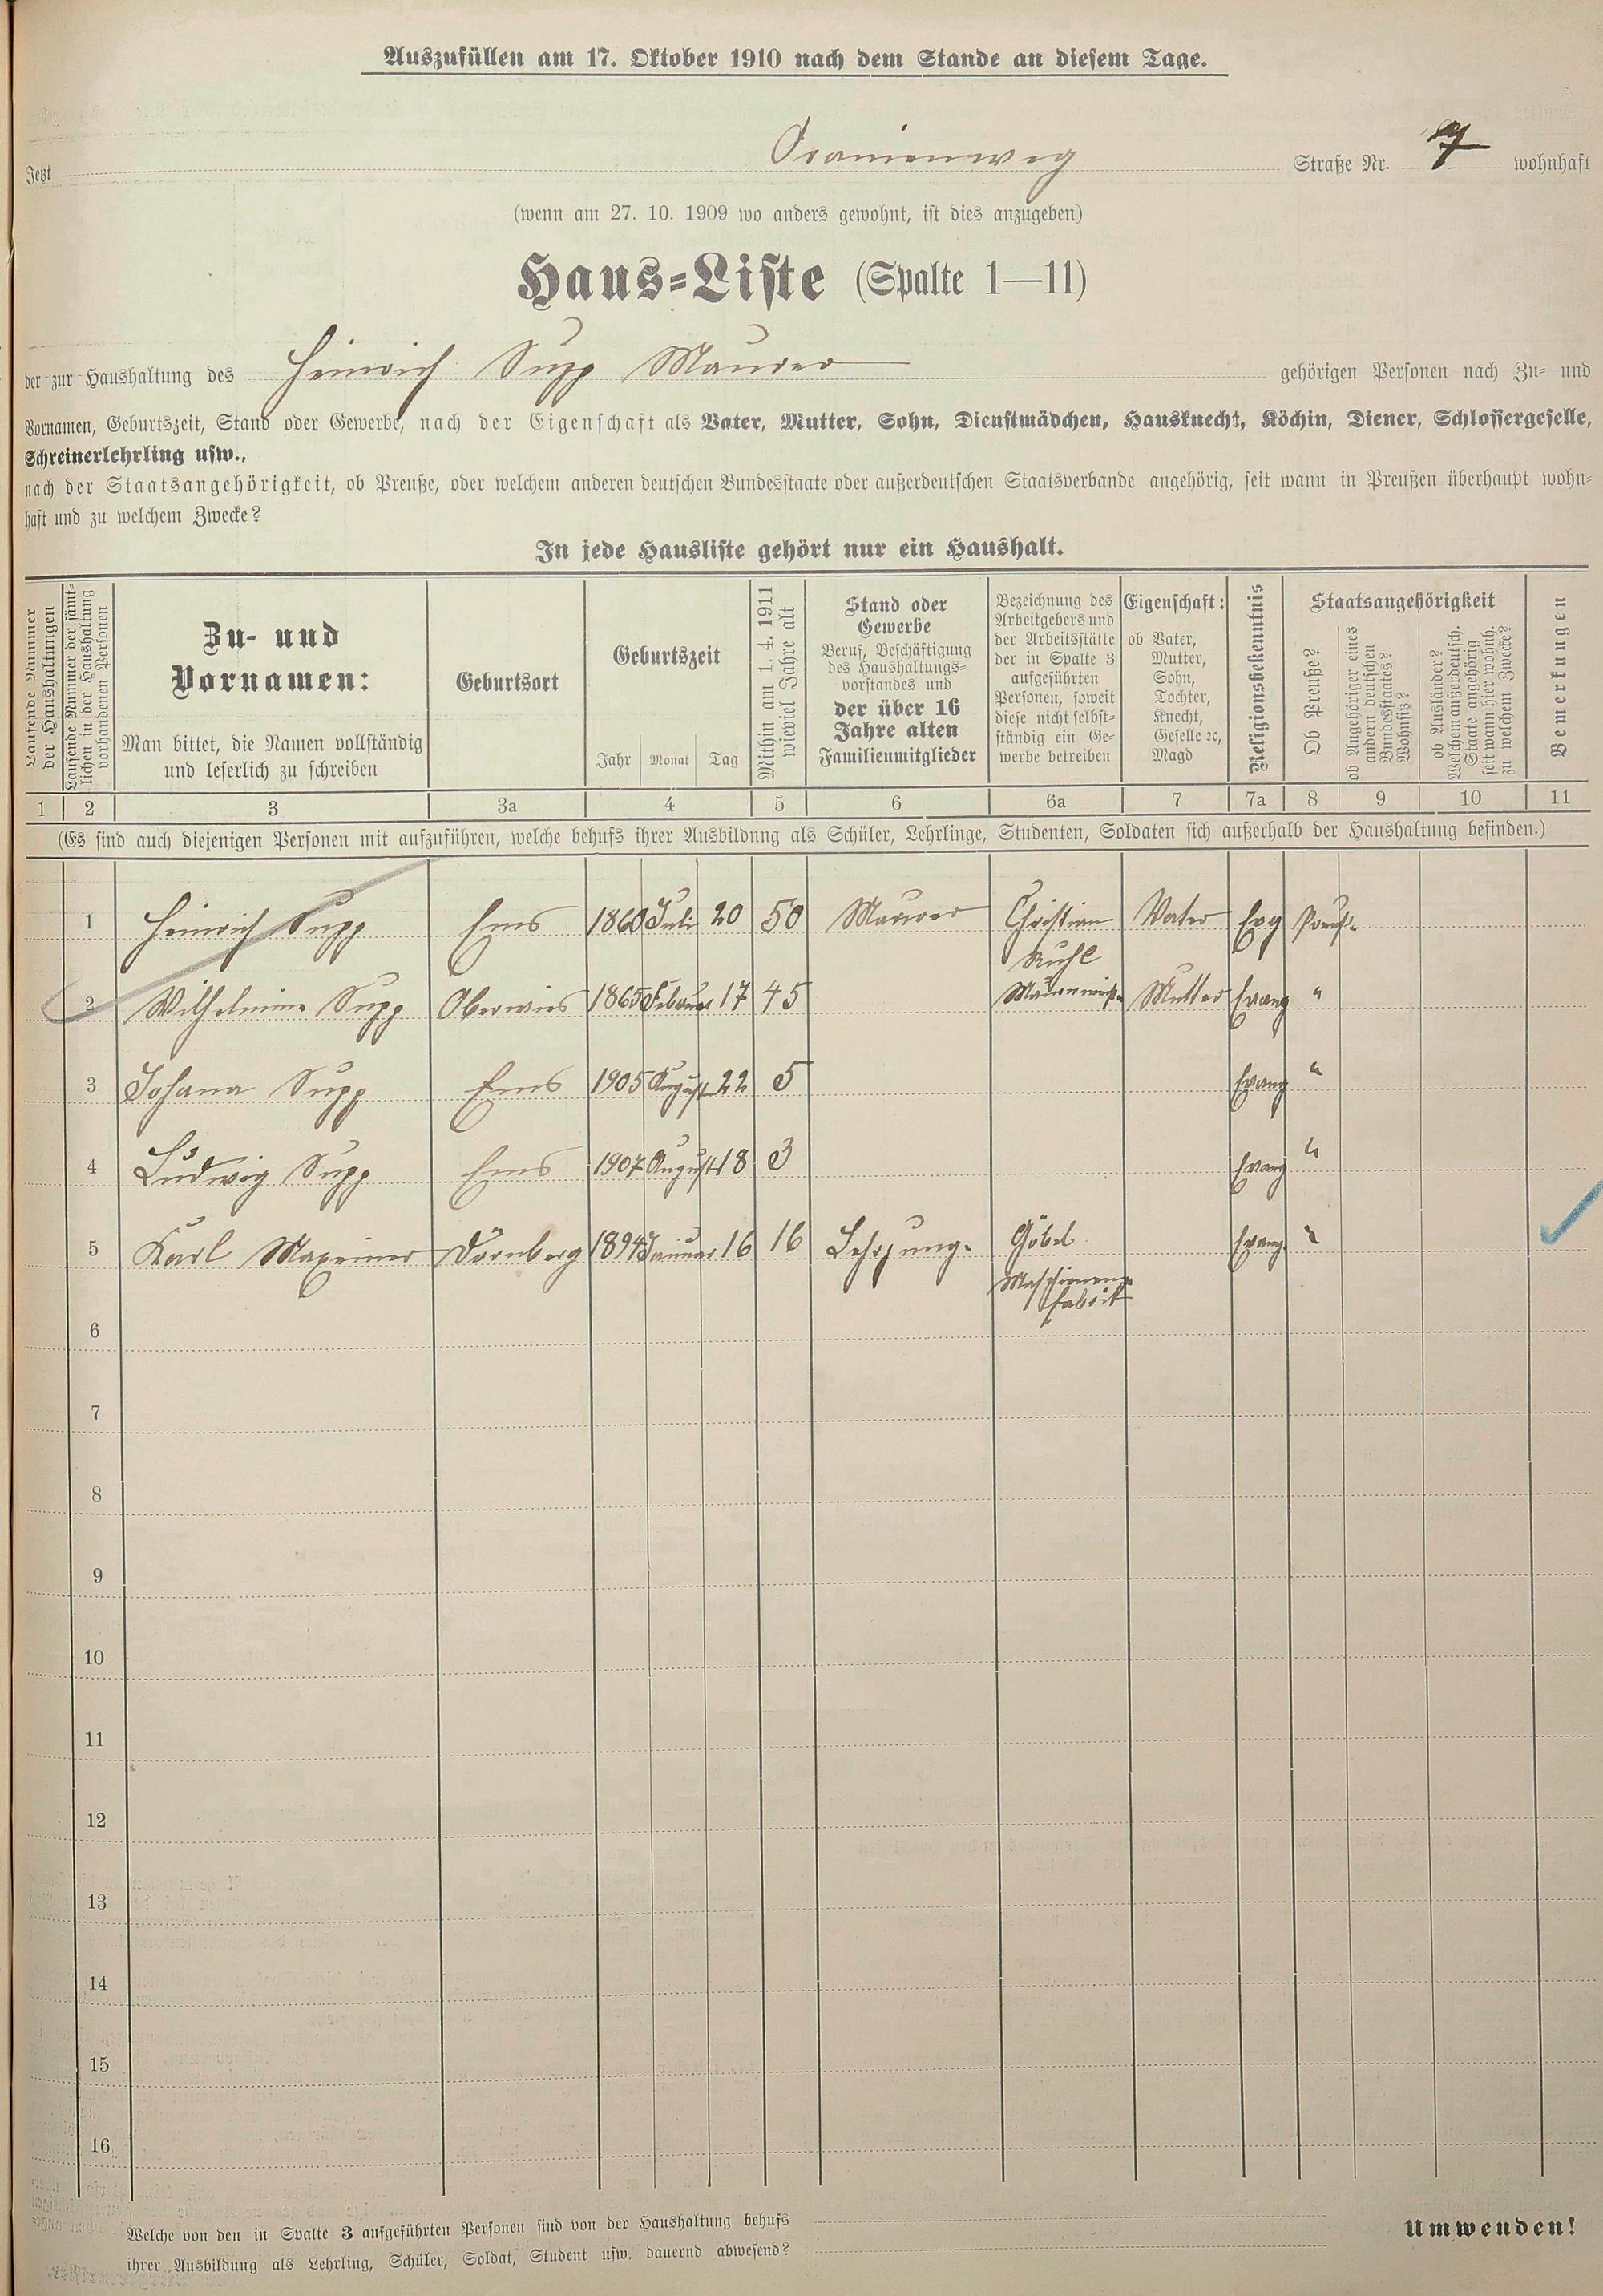 Auszufüllen am 17. Oktober 1910 nach dem Stande an diesem Tage.
Jetzt Oranienweg Straße Nr. 7 wohnhaft
(wenn am 27. 10. 1909 wo anders gewohnt, ist dies anzugeben)
Haus-Liste (Spalte 1—11)
der zur Haushaltung des Heinrich Supp Maurer gehörigen Personen nach Zu- und
Vornamen, Geburtszeit, Stand oder Gewerbe, nach der Eigenschaft als Vater, Mutter, Sohn, Dienstmädchen, Hausknecht, Köchin, Diener, Schlossergeselle,
Schreinerlehrling usw.,
nach der Staatsangehörigkeit, ob Preuße, oder welchem anderen deutschen Bundesstaate oder außerdeutschen Staatsverbande angehörig, seit wann in Preußen überhaupt wohn-
haft und zu welchem Zwecke?
In jede Hausliste gehört nur ein Haushalt.
Laufende Nummer
der Haushaltungen
Laufende Nummer der sämt-
lichen in der Haushaltung
vorhandenen Personen
Zu- und
Vornamen:
Man bittet, die Namen vollständig
und leserlich zu schreiben
Geburtsort
Geburtszeit
Jahr Monat Tag
Mithin am 1. 4. 1911
wieviel Jahre alt
Stand oder
Gewerbe
Beruf, Beschäftigung
des Haushaltungs-
vorstandes und
der über 16
Jahre alten
Familienmitglieder
Bezeichnung des
Arbeitgebers und
der Arbeitsstätte
der in Spalte 3
aufgeführten
Personen, soweit
diese nicht selbst-
ständig ein Ge-
werbe betreiben
Eigenschaft:
ob Vater,
Mutter,
Sohn,
Tochter,
Knecht,
Geselle ꝛc,
Magd
Religionsbekenntnis
Staatsangehörigkeit
Ob Preuße?
ob Angehöriger eines
andern deutschen
Bundesstaates?
Wohnsitz?
ob Ausländer?
Welchem außerdeutsch.
Staate angehörig
seit wann hier wohnh.
zu welchem Zwecke?
Bemerkungen
1 2 3 3a 4 5 6 6a 7 7a 8 9 10 11
(Es sind auch diejenigen Personen mit aufzuführen, welche behufs ihrer Ausbildung als Schüler, Lehrlinge, Studenten, Soldaten sich außerhalb der Haushaltung befinden.)
1 Heinrich Supp Ems 1860 Juli 20 50 Maurer Christian Vater Evg Preuß.
Ruhl
2 Wilhelmine Supp Oberwies 1865 Februar 17 45 Mutter Evang "
3 Johana Supp Ems 1905 August 22 5 Evang "
4 Ludwig Supp Ems 1907 August 18 3 Evang "
5 Karl Maxeiner Dörnberg 1894 Januar 16 16 Göbel Evang. "
Maschienen-
fabrik
6
7
8
9
10
11
12
13
14
15
16
Welche von den in Spalte 3 aufgeführten Personen sind von der Haushaltung behufs
ihrer Ausbildung als Lehrling, Schüler, Soldat, Student usw. dauernd abwesend?
Umwenden!